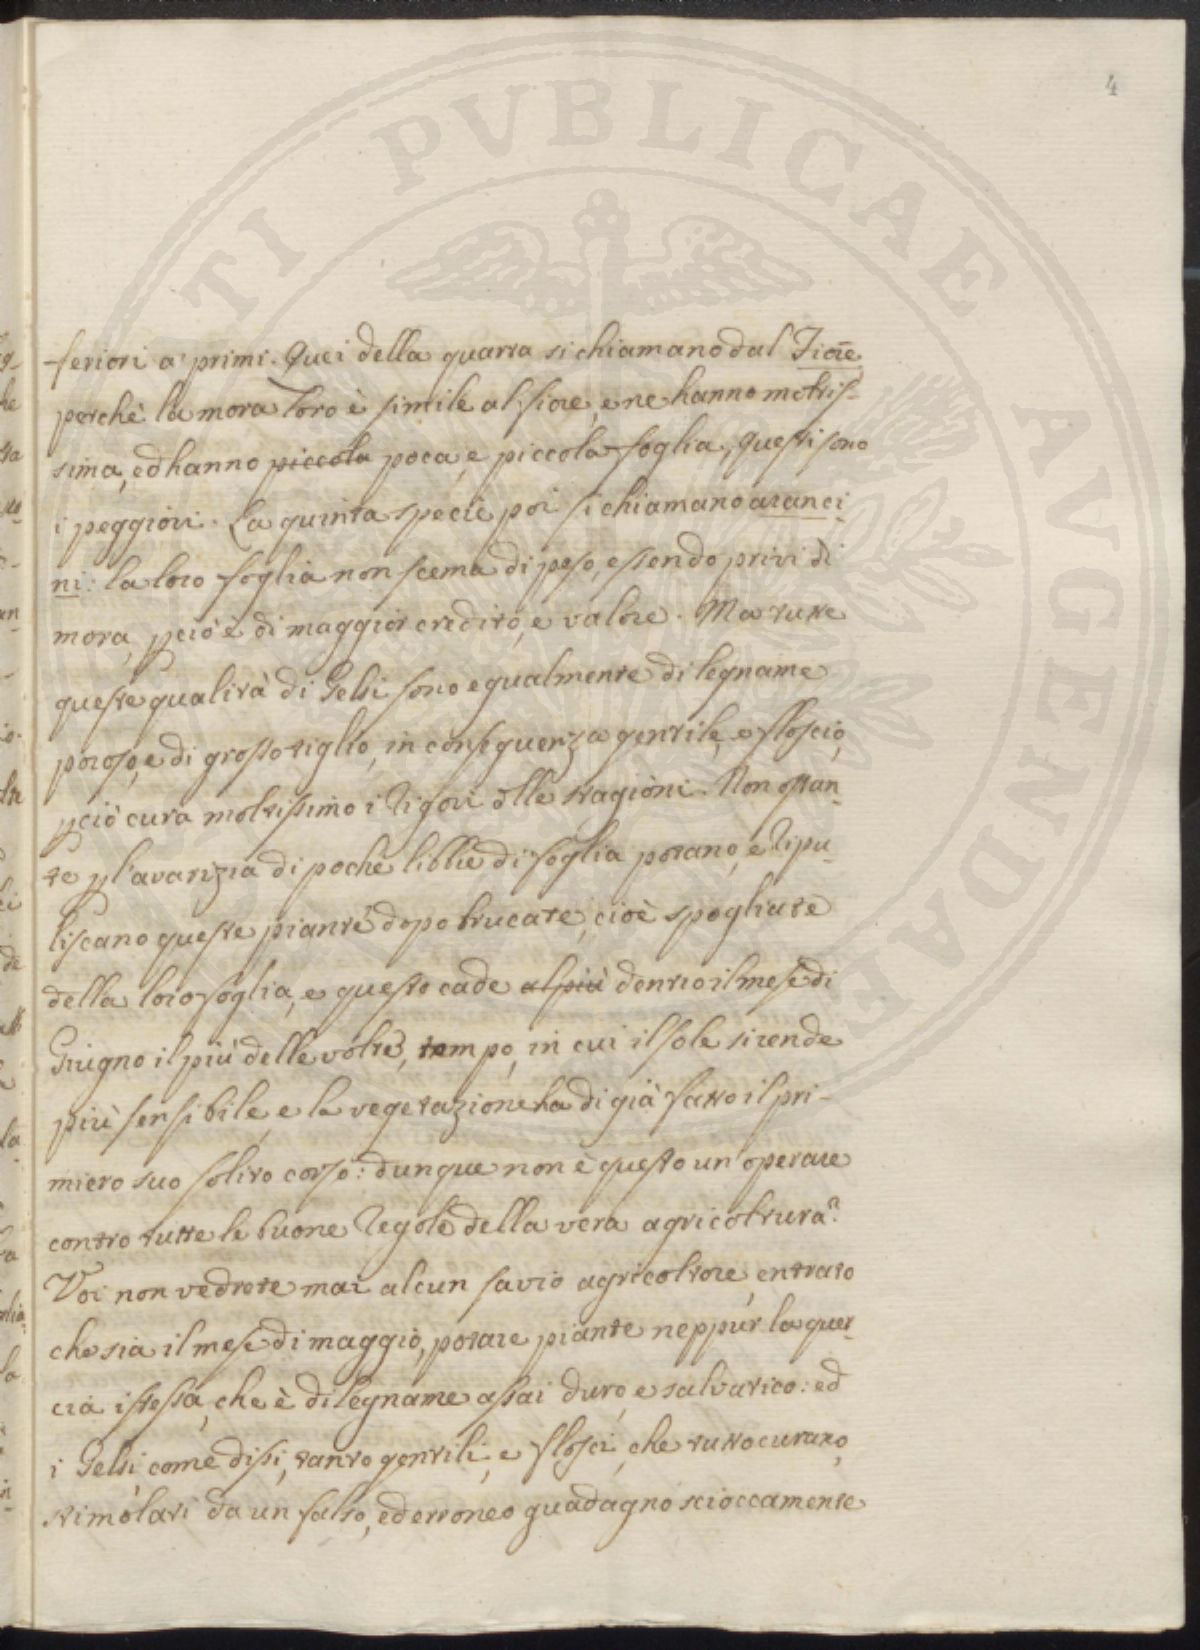 4
feriori a' primi. Quei della quarta si chiamano dal Fiore
perchè la mora loro è simile al fiore, e ne hanno moltis-
sima, ed hanno piccola poca, e piccola foglia. Questi sono
i peggiori. La quinta specie poi si chiamano aranci-
ni: la loro foglia non scema di peso, essendo privi di
mora, pciò è di maggior credito, e valore. Ma tutte
queste qualità di Gelsi sono egualmente di legname
poroso, e di grosso tiglio, in conseguenza gentile, e floscio,
pciò cura moltissimo i rigori delle stagioni. Non ostan-
te p l'avarizia di poche libbre di foglia potano, e ripu-
liscano queste piante dopo brucate, cioè spogliate
della loro foglia, e questo cade al più dentro il mese di
Giugno il più delle volte, tempo, in cui il sole si rende
più sensibile, e la vegetazione ha di già fatto il pri-
miero suo solito corso: dunque non è questo un operare
contro tutte le buone regole della vera agricoltura?
Voi non vedrete mai alcun savio agricoltore, entrato
che sia il mese di maggio, potare piante neppur la quer-
cia istessa, che è di legname assai duro, e salvatico: ed
i Gelsi come dissi, tanto gentili, e flosci, che tutto curano,
stimolati da un falso, ed erroneo guadagno scioccamente
TI PVBLICAE AVGENDAE